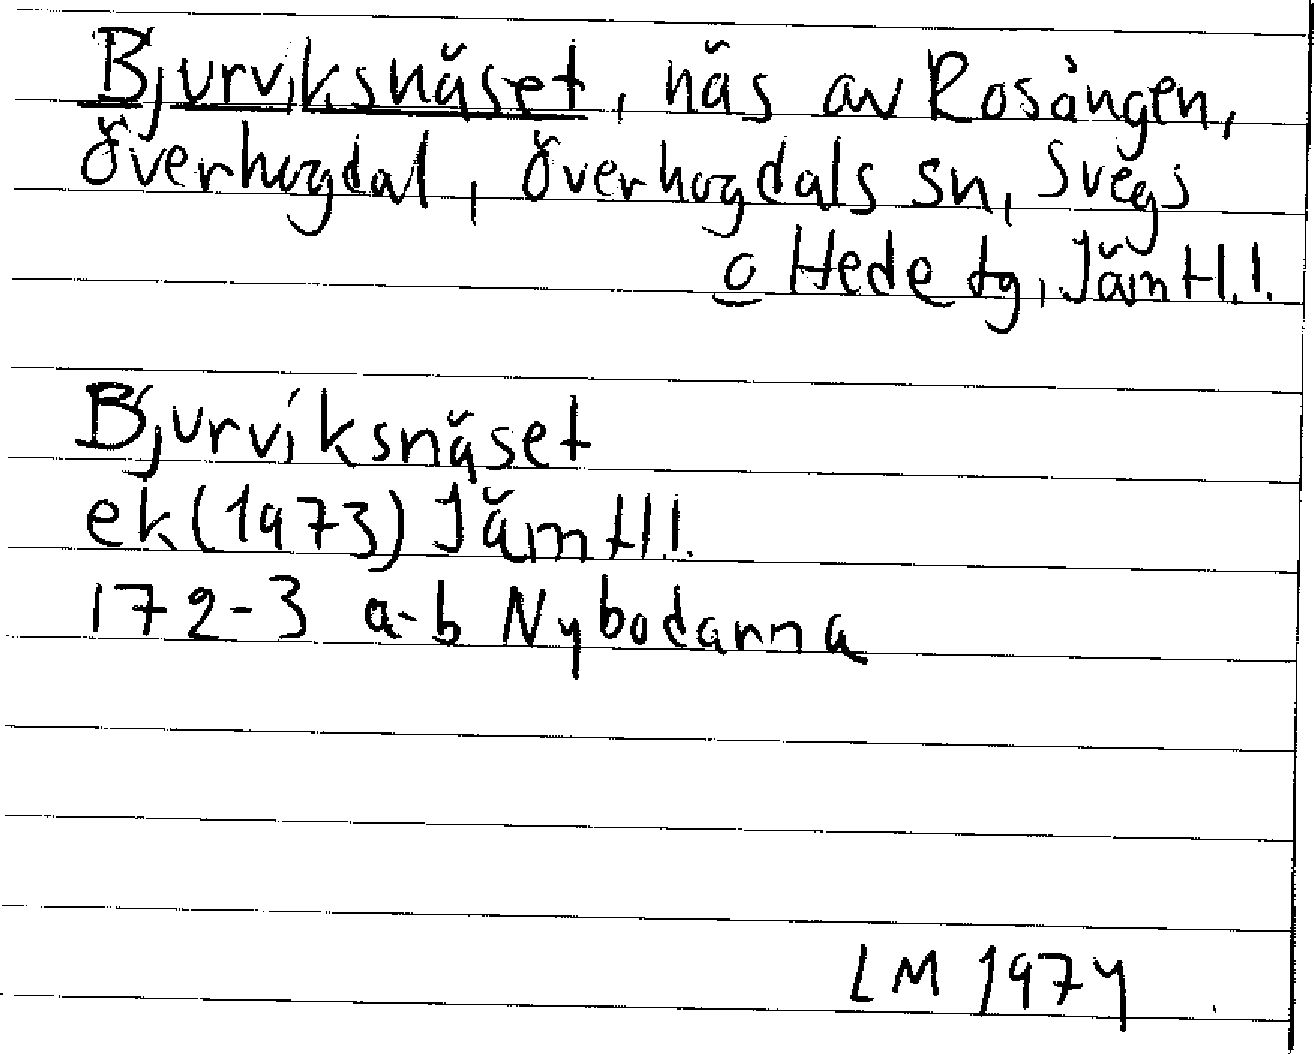 Bjurviksnäset, näs av Rosången,
Överhogdal, Överhogdals sn, Svegs
o Hede tg, Jämtl.l.
Bjurviksnäset
ek (1973) Jämtl.l.
172-3 a-b Nybodarna
LM 1974